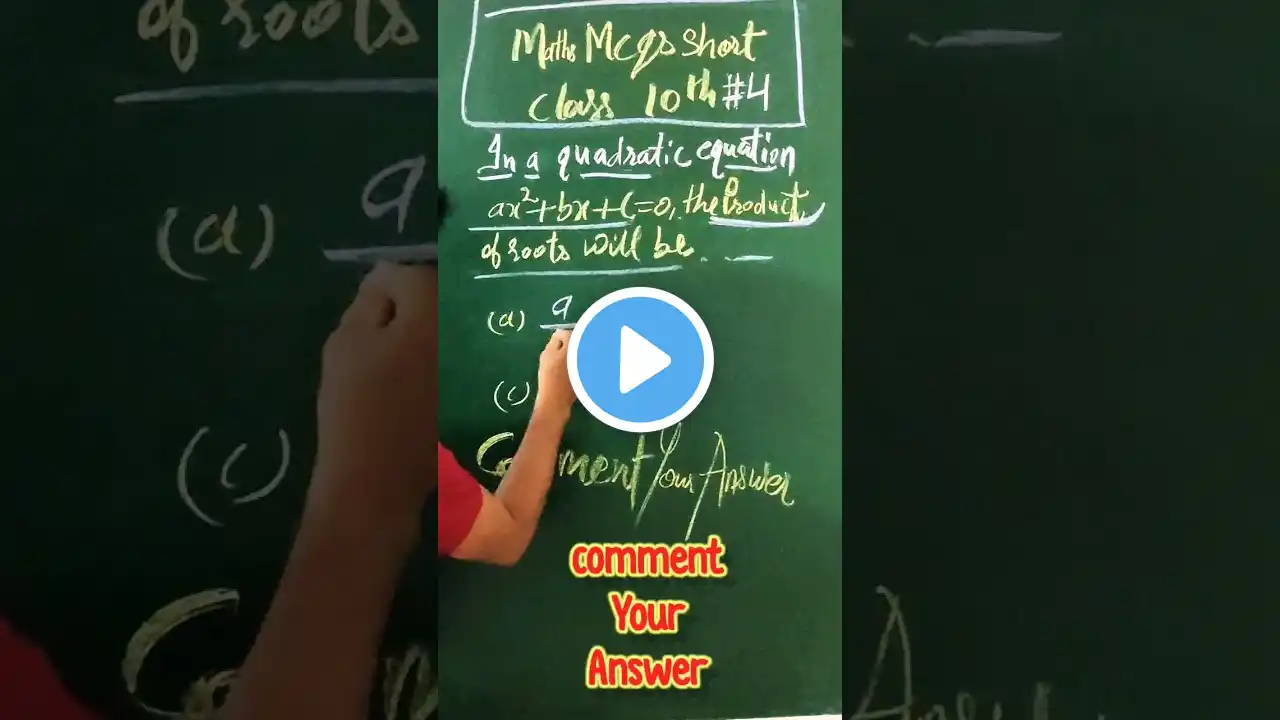 Maths Mcqs Short
Class 10th #4
In a quadratic equation
ax²+bx+c=0, the Product
of roots will be . . __
(a) a
(c)
Comment Your Answer
comment
Your
Answer